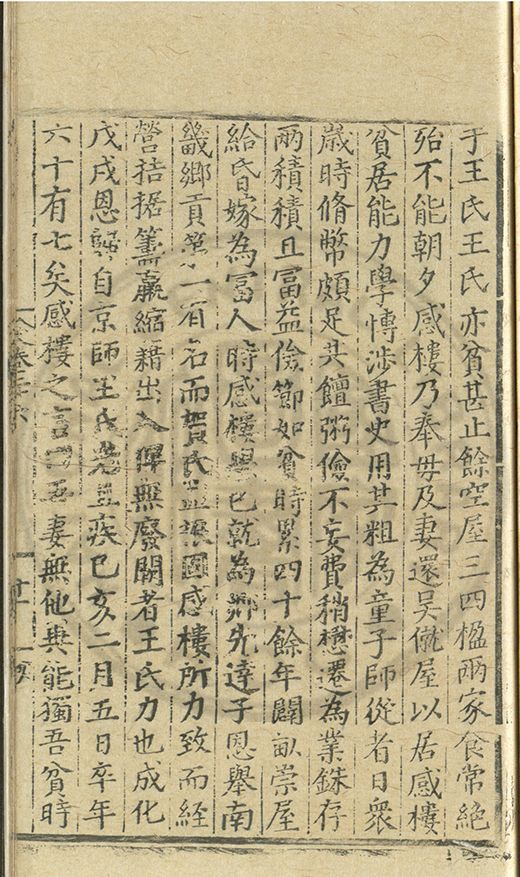 于王氏王氏亦貧甚止餘空屋三四楹兩家食常絕
殆不能朝夕感樓乃奉母及妻還吳僦屋以居感樓
貧居能力學愽涉書史用其粗為童子師從者日衆
歲時脩幣頗足共饘粥儉不妄費稍懋遷為業銖存
兩積積且冨益儉節如貧時累四十餘年闢畝崇屋
給昏嫁為冨人時感樓學已就為鄉先達子恩舉南
畿鄉貢第一有名而賀氏益振固感樓所力致而經
營拮据籌羸縮藉出入俾無廢闕者王氏力也成化
戊戌恩歸自京師王氏老且疾已亥二月五日卒年
六十有七矣感樓之言曰吾妻無他異能獨吾貧時